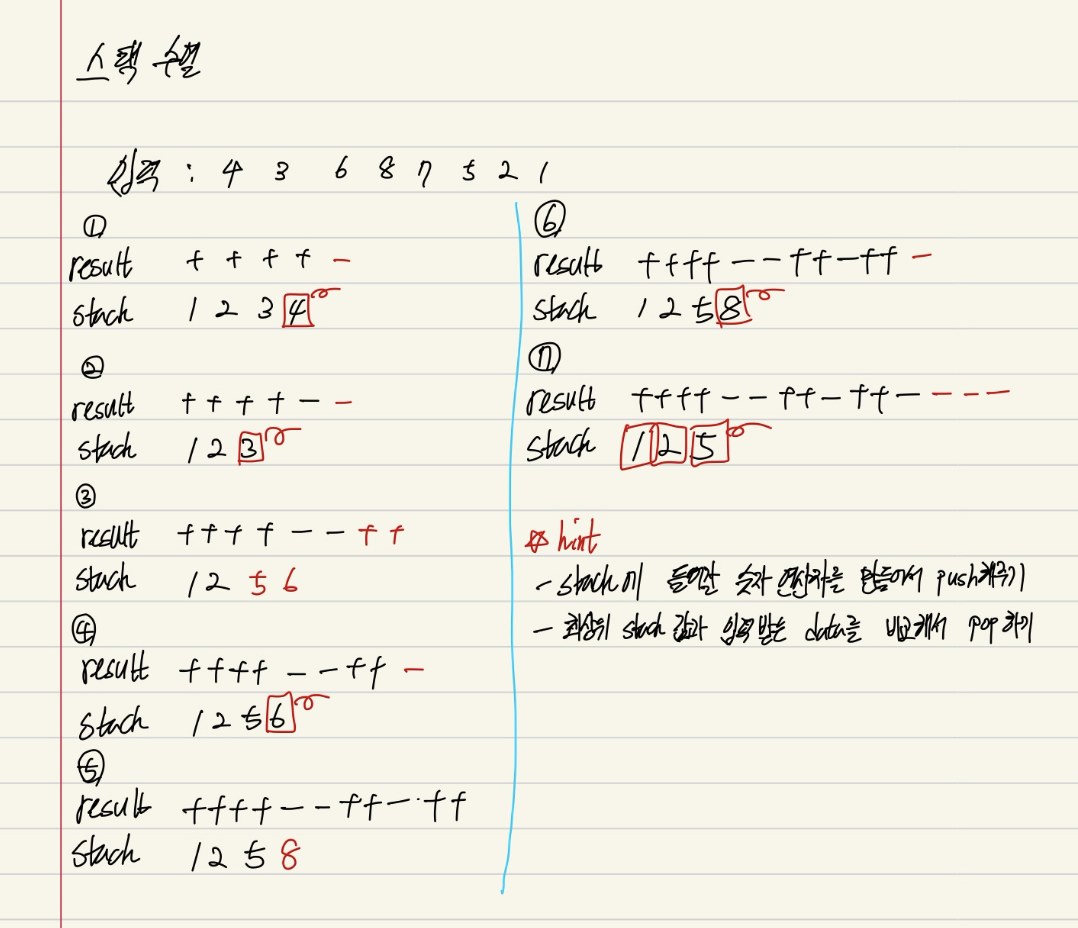 스택 수열
입력 : 4 3 6 8 7 5 2 1
①
result + + + + -
stack 1 2 3 4
②
result + + + + - -
stack 1 2 3
③
result + + + + - - + +
stack 1 2 5 6
④
result + + + + - - + + -
stack 1 2 5 6
⑤
result + + + + - - + + - + +
stack 1 2 5 8
⑥
result + + + + - - + + - + + -
stack 1 2 5 8
⑦
result + + + + - - + + - + + - - - -
stack 1 2 5
☆ hint
- stack에 들어갈 숫자 연산자를 만들어서 push해주기
- 최상위 stack 값과 입력 받는 data를 비교해서 pop 하기